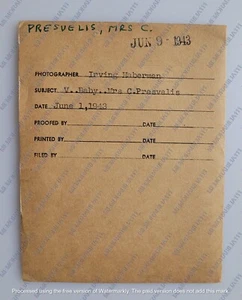 PRESVELIS, MRS C.
JUN 9 - 1943
PHOTOGRAPHER Irving Haberman
SUBJECT V..Baby..Mrs C.Presvelis
DATE June 1,1943
PROOFED BY DATE
PRINTED BY DATE
FILED BY DATE
Processed using the free version of Watermarkly. The paid version does not add this mark.